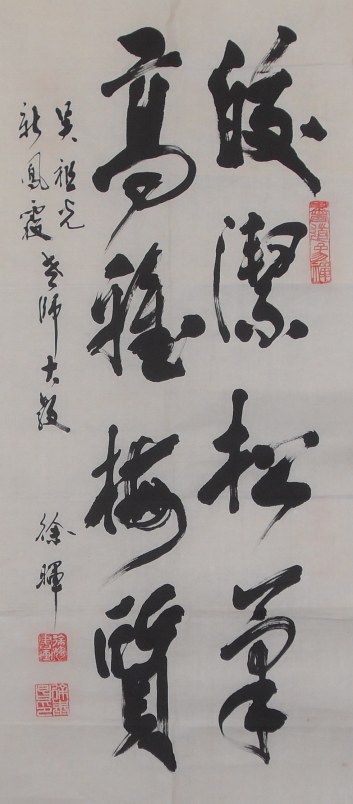 皎潔松
高雅梅質
吴祖光
新鳳霞老師大教
徐暉